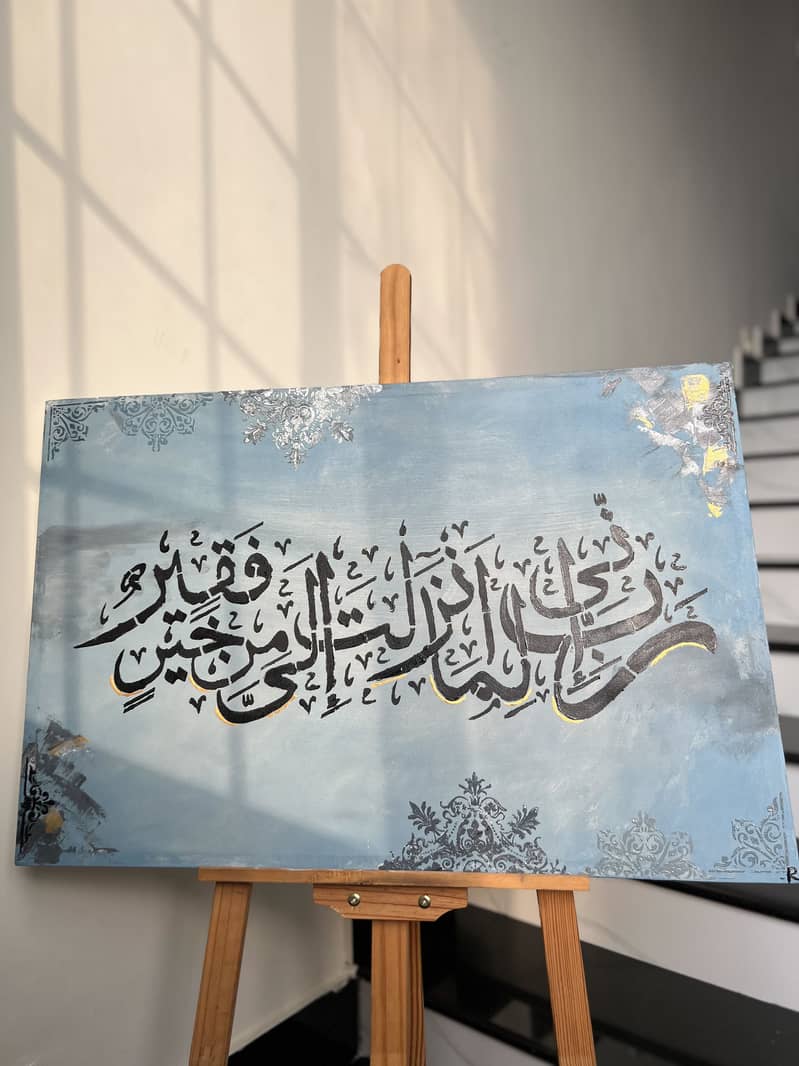 رَبِّ إِنِّي لِمَا أَنزَلْتَ إِلَيَّ مِنْ خَيْرٍ فَقِيرٌ
R